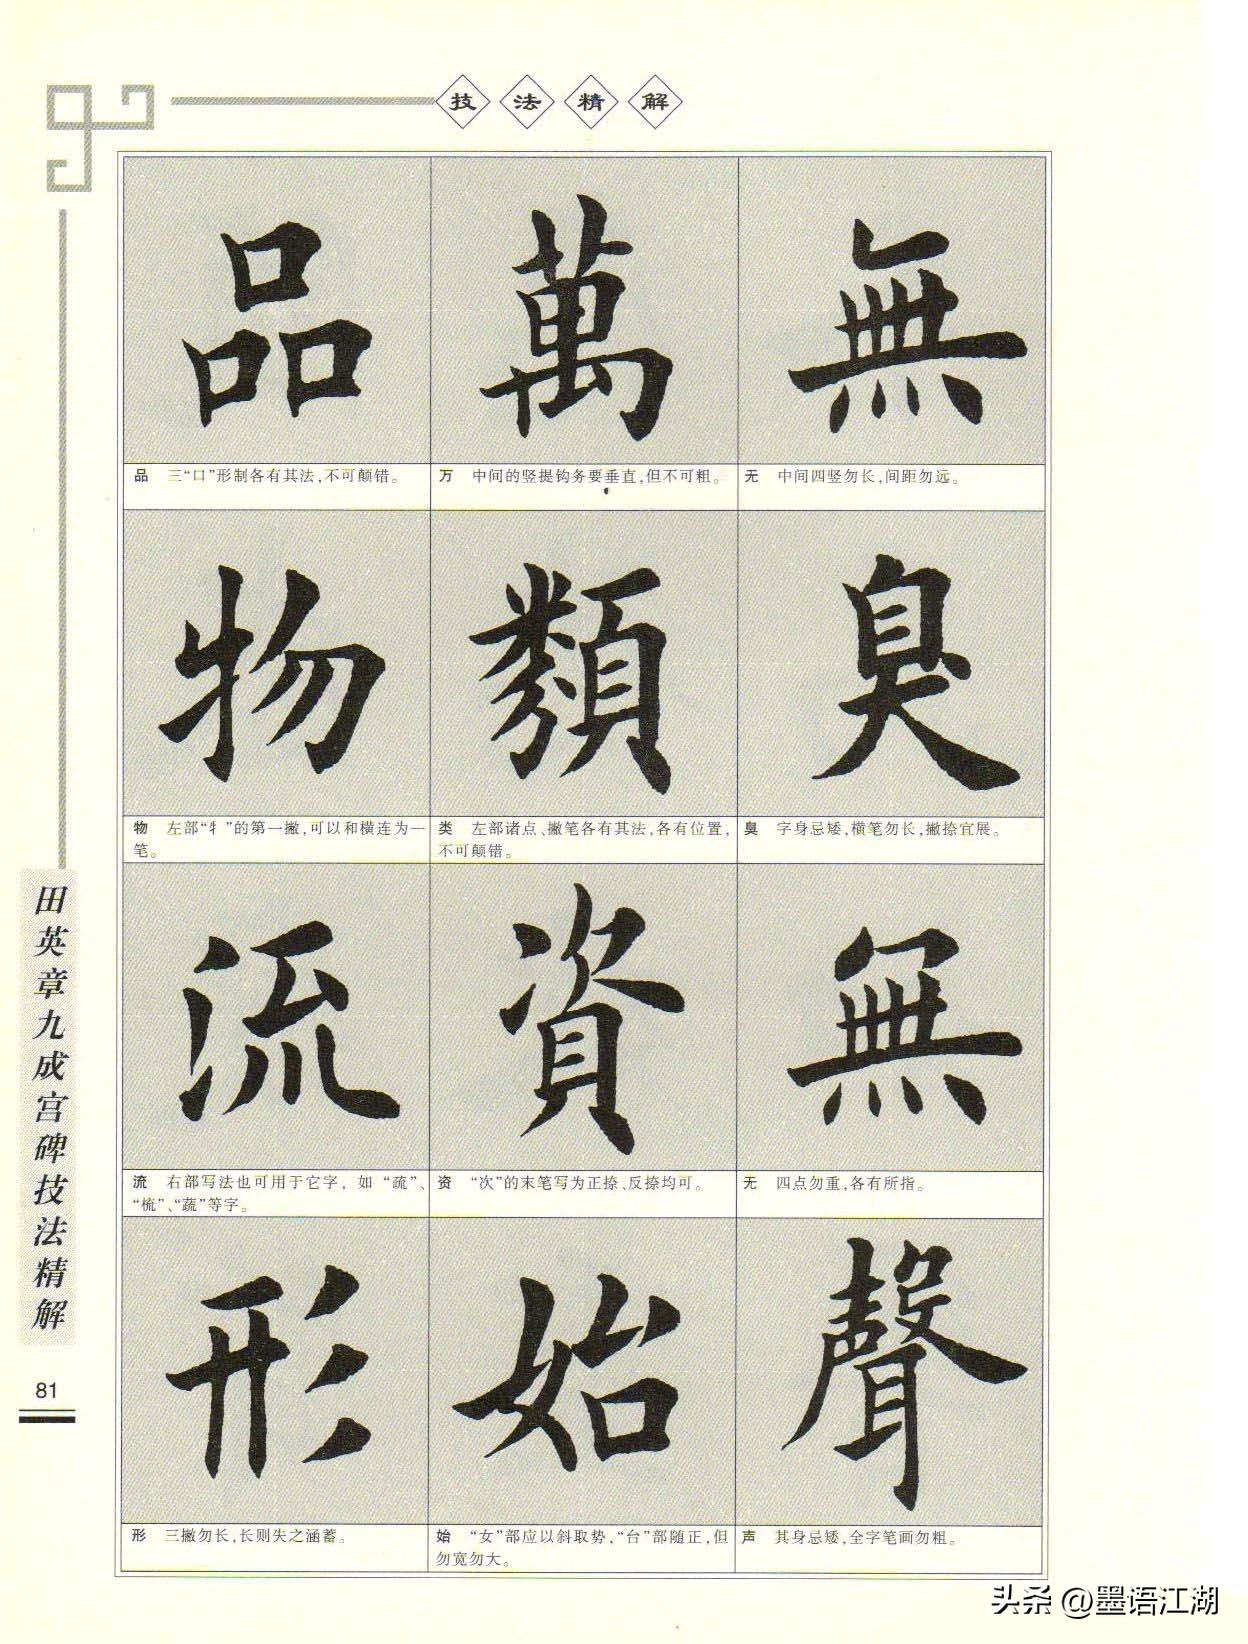 技法精解
品 萬 無
品 三“口”形制各有其法,不可颠错。
万 中间的竖提钩务要垂直,但不可粗。
无 中间四竖勿长,间距勿远。
物 類 臭
物 左部“牜”的第一撇,可以和横连为一
笔。
类 左部诸点、撇笔各有其法,各有位置,
不可颠错。
臭 字身忌矮,横笔勿长,撇捺宜展。
流 資 無
流 右部写法也可用于它字, 如“疏”、
“梳”、“蔬”等字。
资 “次”的末笔写为正捺、反捺均可。
无 四点勿重,各有所指。
形 始 聲
形 三撇勿长,长则失之涵蓄。
始 “女”部应以斜取势,“台”部随正,但
勿宽勿大。
声 其身忌矮,全字笔画勿粗。
田英章九成宫碑技法精解
81
头条 @墨语江湖